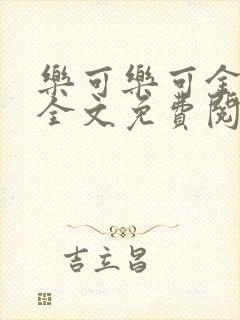 樂可樂可全
全文免費閱
吉立昌